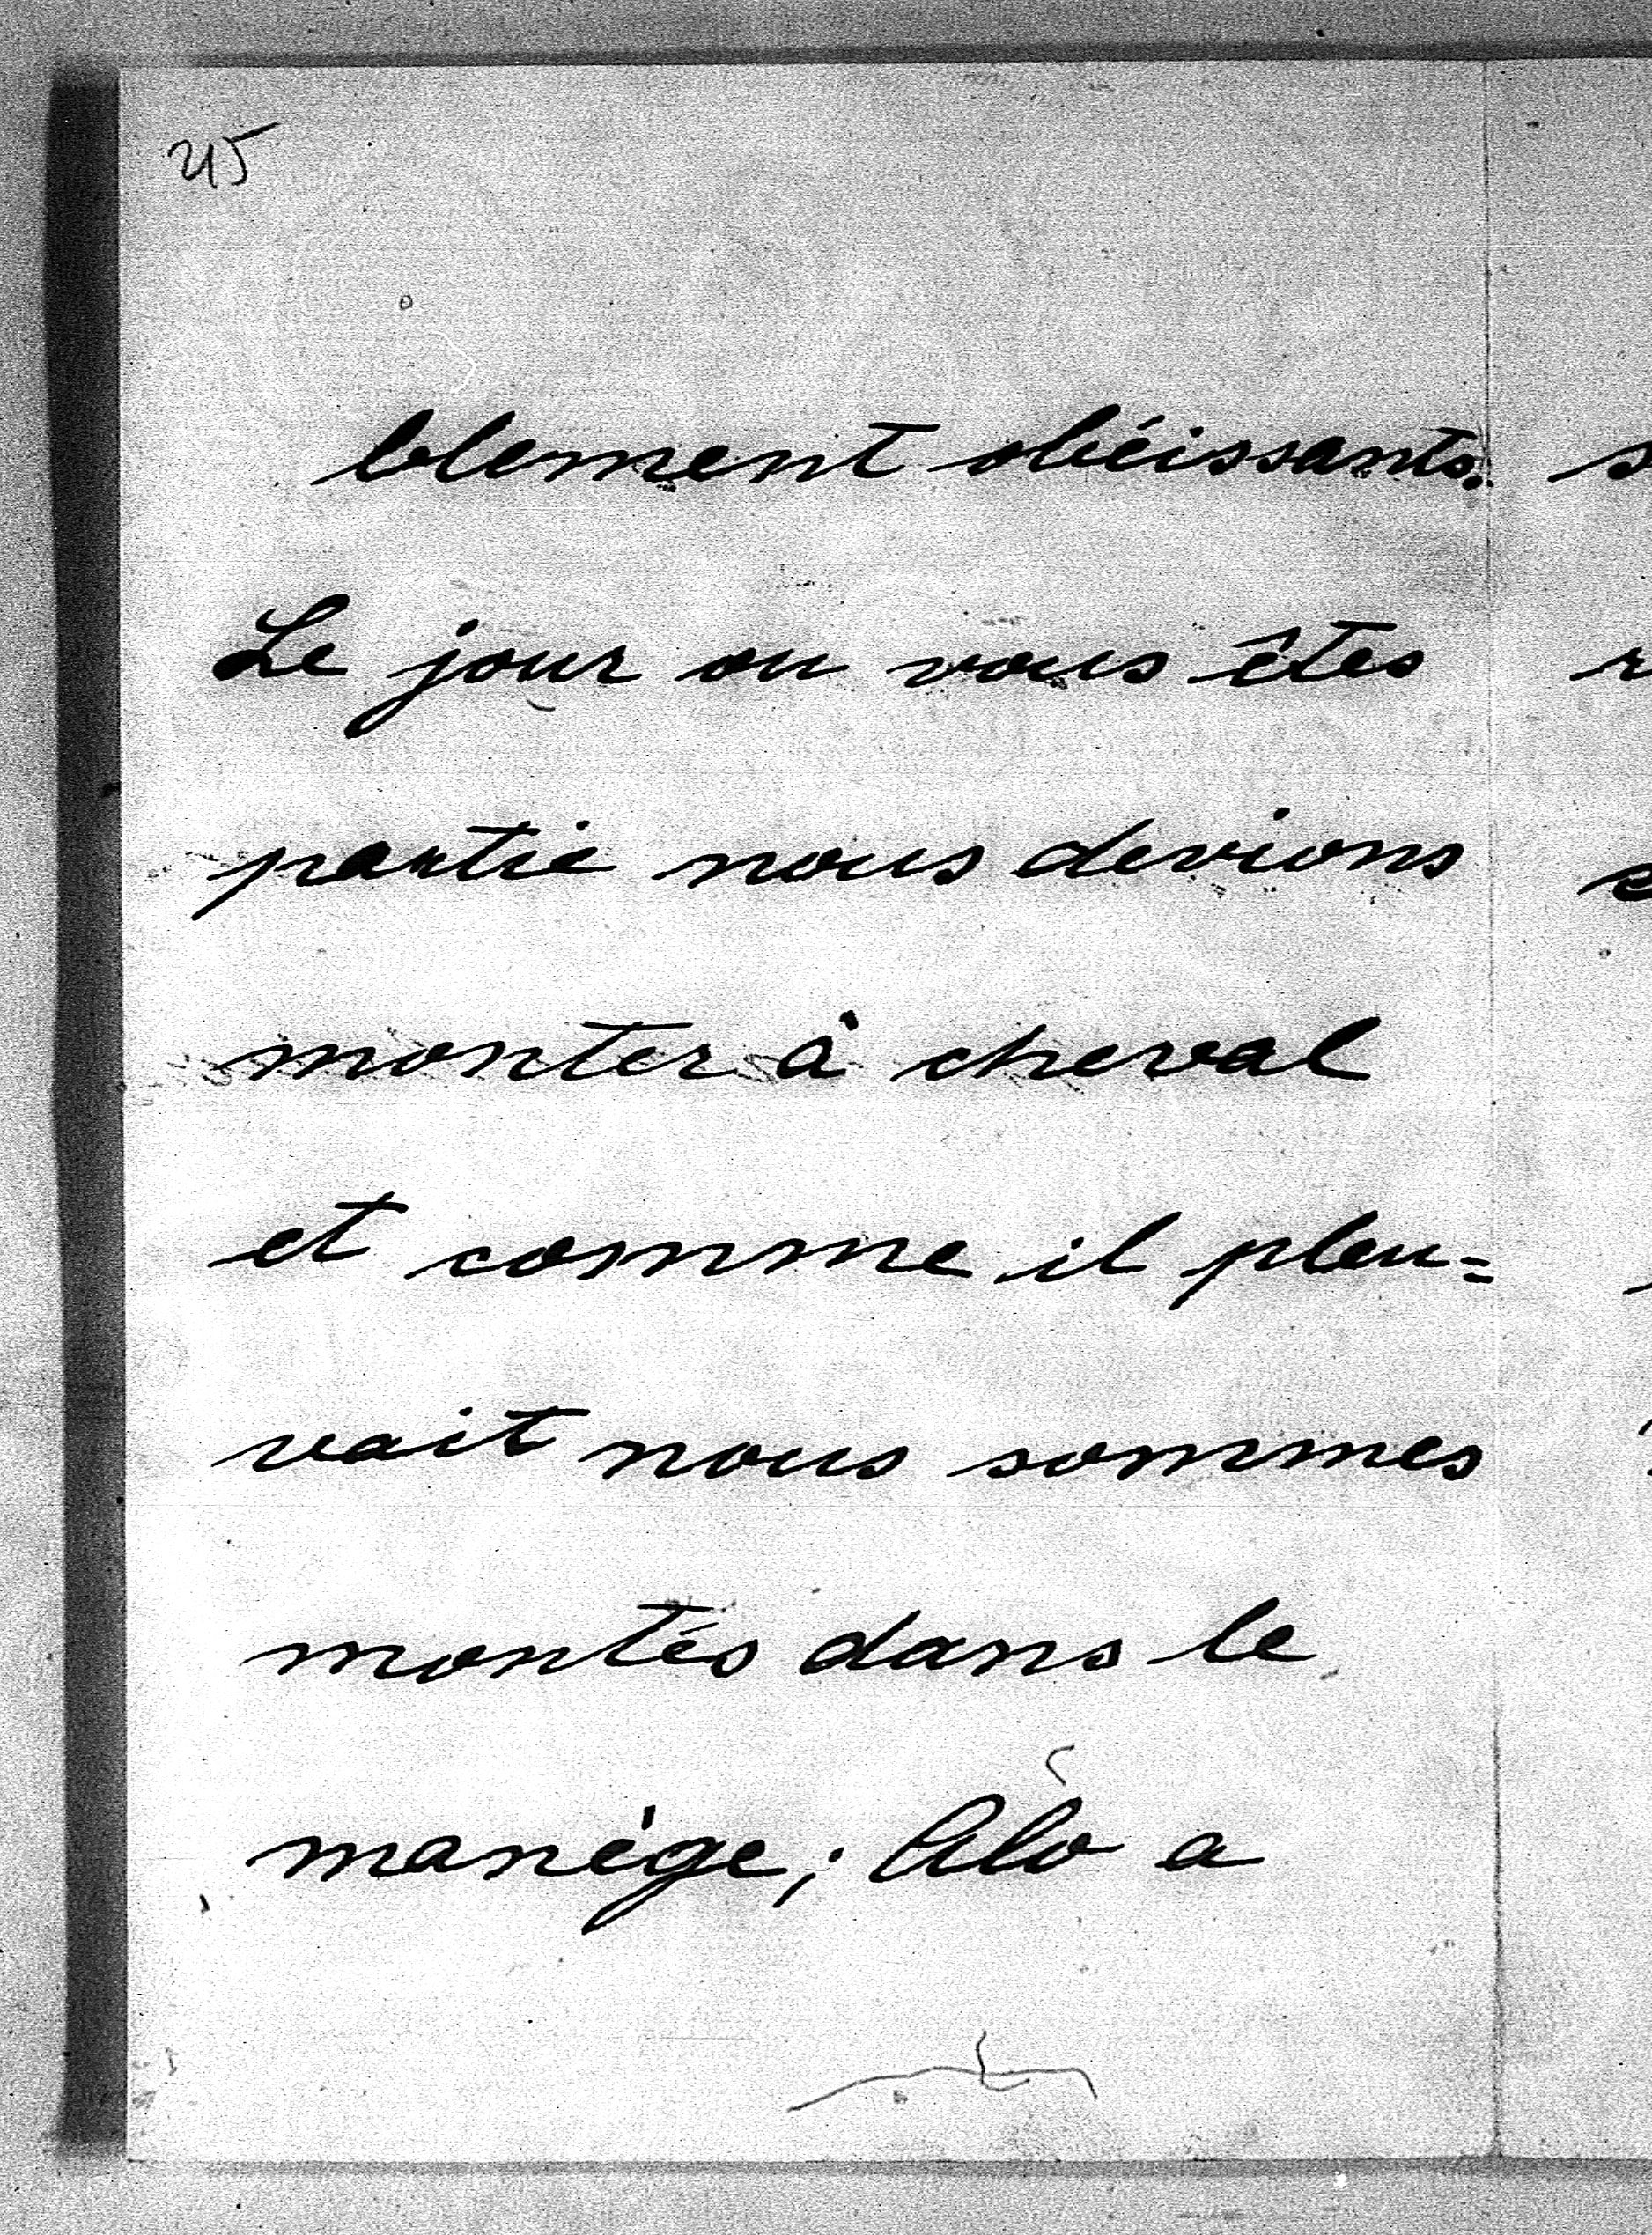 45
blement obéissants.
Le jour ou vous êtes
partie nous devions
monter à cheval
et comme il pleu=
vait nous sommes
montés dans le
manège; Alo a